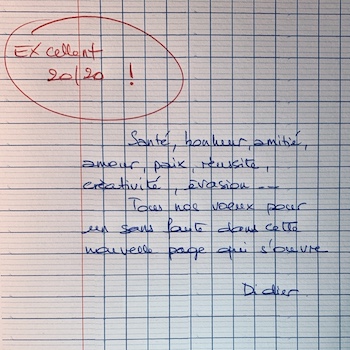 EXcellent
20/20 !
Santé, bonheur, amitié,
amour, paix, réussite,
créativité, évasion ---
Tous nos vœux pour
un sans faute dans cette
nouvelle page qui s'ouvre
Didier